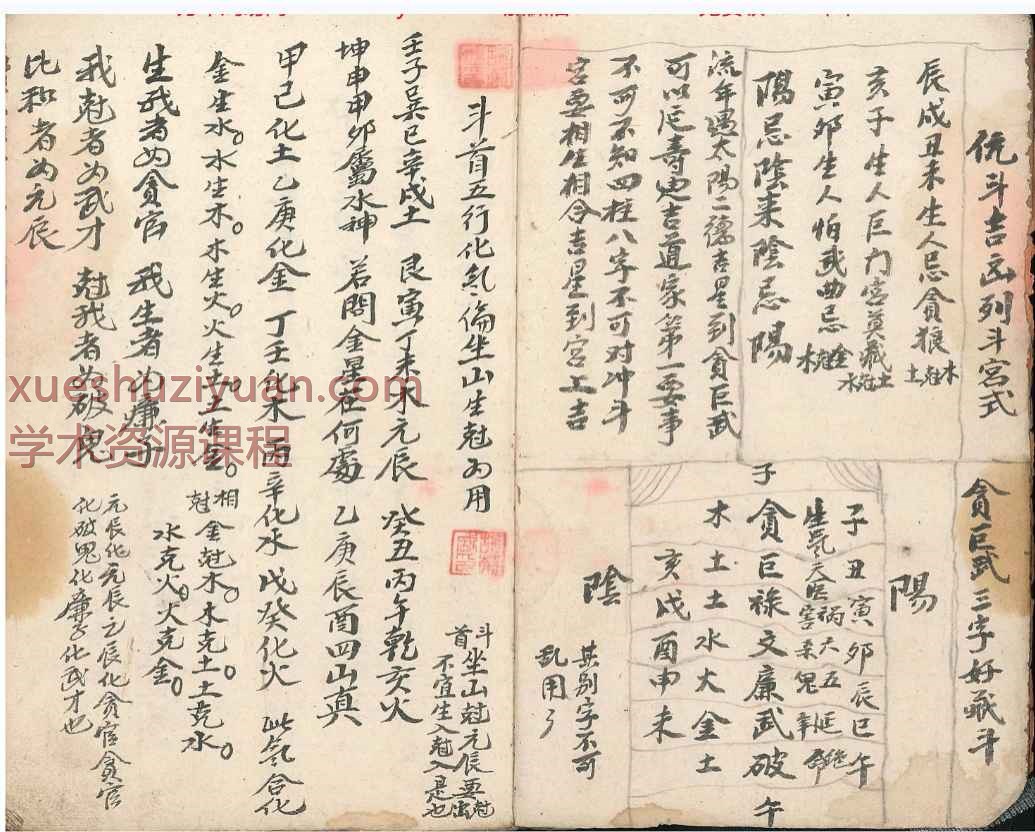 伉斗吉凶列斗宮式
辰戌丑未生人忌貪狼 木尅土
亥子生人巨门宮莫藏 土尅水
寅卯生人怕武曲忌 金尅木
陽忌陰来陰忌陽
流年遇太陽二德吉星到貪巨武
可以延壽迪吉道家第一要事
不可不知四柱八字不可对冲斗
宮要相生相合吉星到宮上吉
貪巨武三字好藏斗
陽
子丑寅卯辰巳午
生氣天医祸害六煞五鬼延年絶命
子
貪巨祿文廉武破
午
木土土水火金土
亥戌酉申未
陰
其别字不可
乱用了
斗首五行化氣倫坐山生尅为用
斗首坐山尅元辰要尅出
不宜生入尅入是也
壬子巽巳辛戌土 艮寅丁未木元辰 癸丑丙午乾亥火
坤申甲卯屬水神 若問金星在何處 乙庚辰酉四山真
甲己化土乙庚化金 丁壬化木丙辛化水 戊癸化火 此氣合化
金生水。水生木。木生火。火生土。土生金。
相尅 金尅木。木克土。土克水。
水克火。火克金。
生我者为貪官 我生者为廉子
我尅者为武才 尅我者为破鬼
比和者为元辰
元辰化元辰元辰化貪官貪官
化破鬼化廉子化武才也
xueshuziyuan.com
学术资源课程